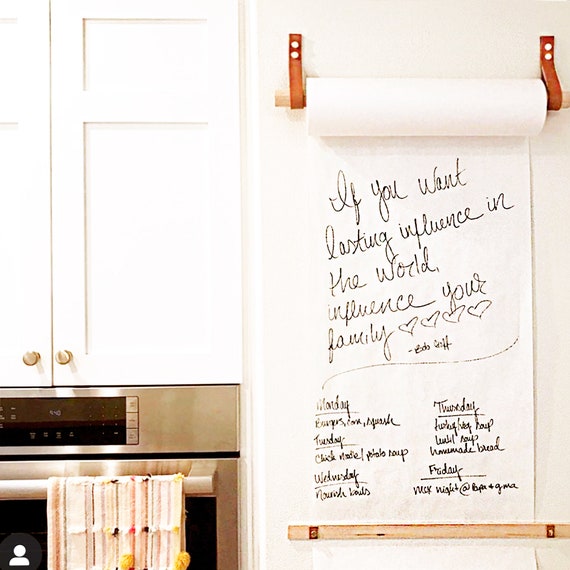 If you want
lasting influence in
the world,
influence your
family ♡♡♡♡
- Bob Goff
Monday
Burgers, corn, squash
Tuesday
Chick noodle/potato soup
Wednesday
Nourish bowls
Thursday
turkey/veg soup
lentil soup
homemade bread
Friday
Mex night @ Papa + g.ma